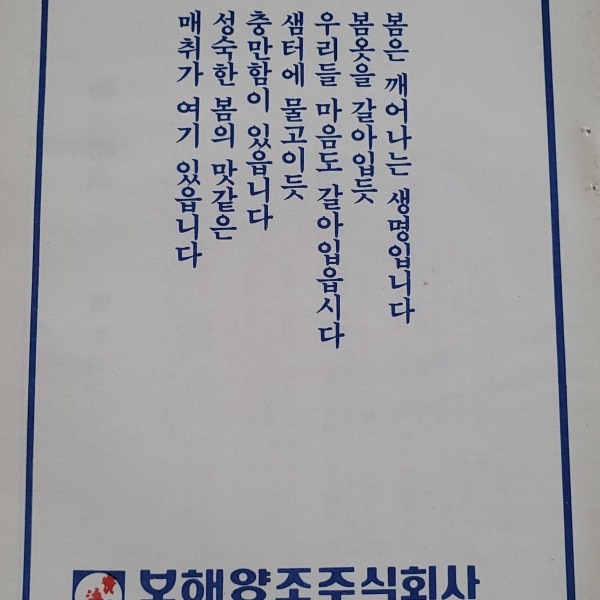 봄은 깨어나는 생명입니다
봄옷을 갈아입듯
우리들 마음도 갈아입읍시다
샘터에 물고이듯
충만함이 있읍니다
성숙한 봄의 맛같은
매취가 여기 있읍니다
보해양조주식회사